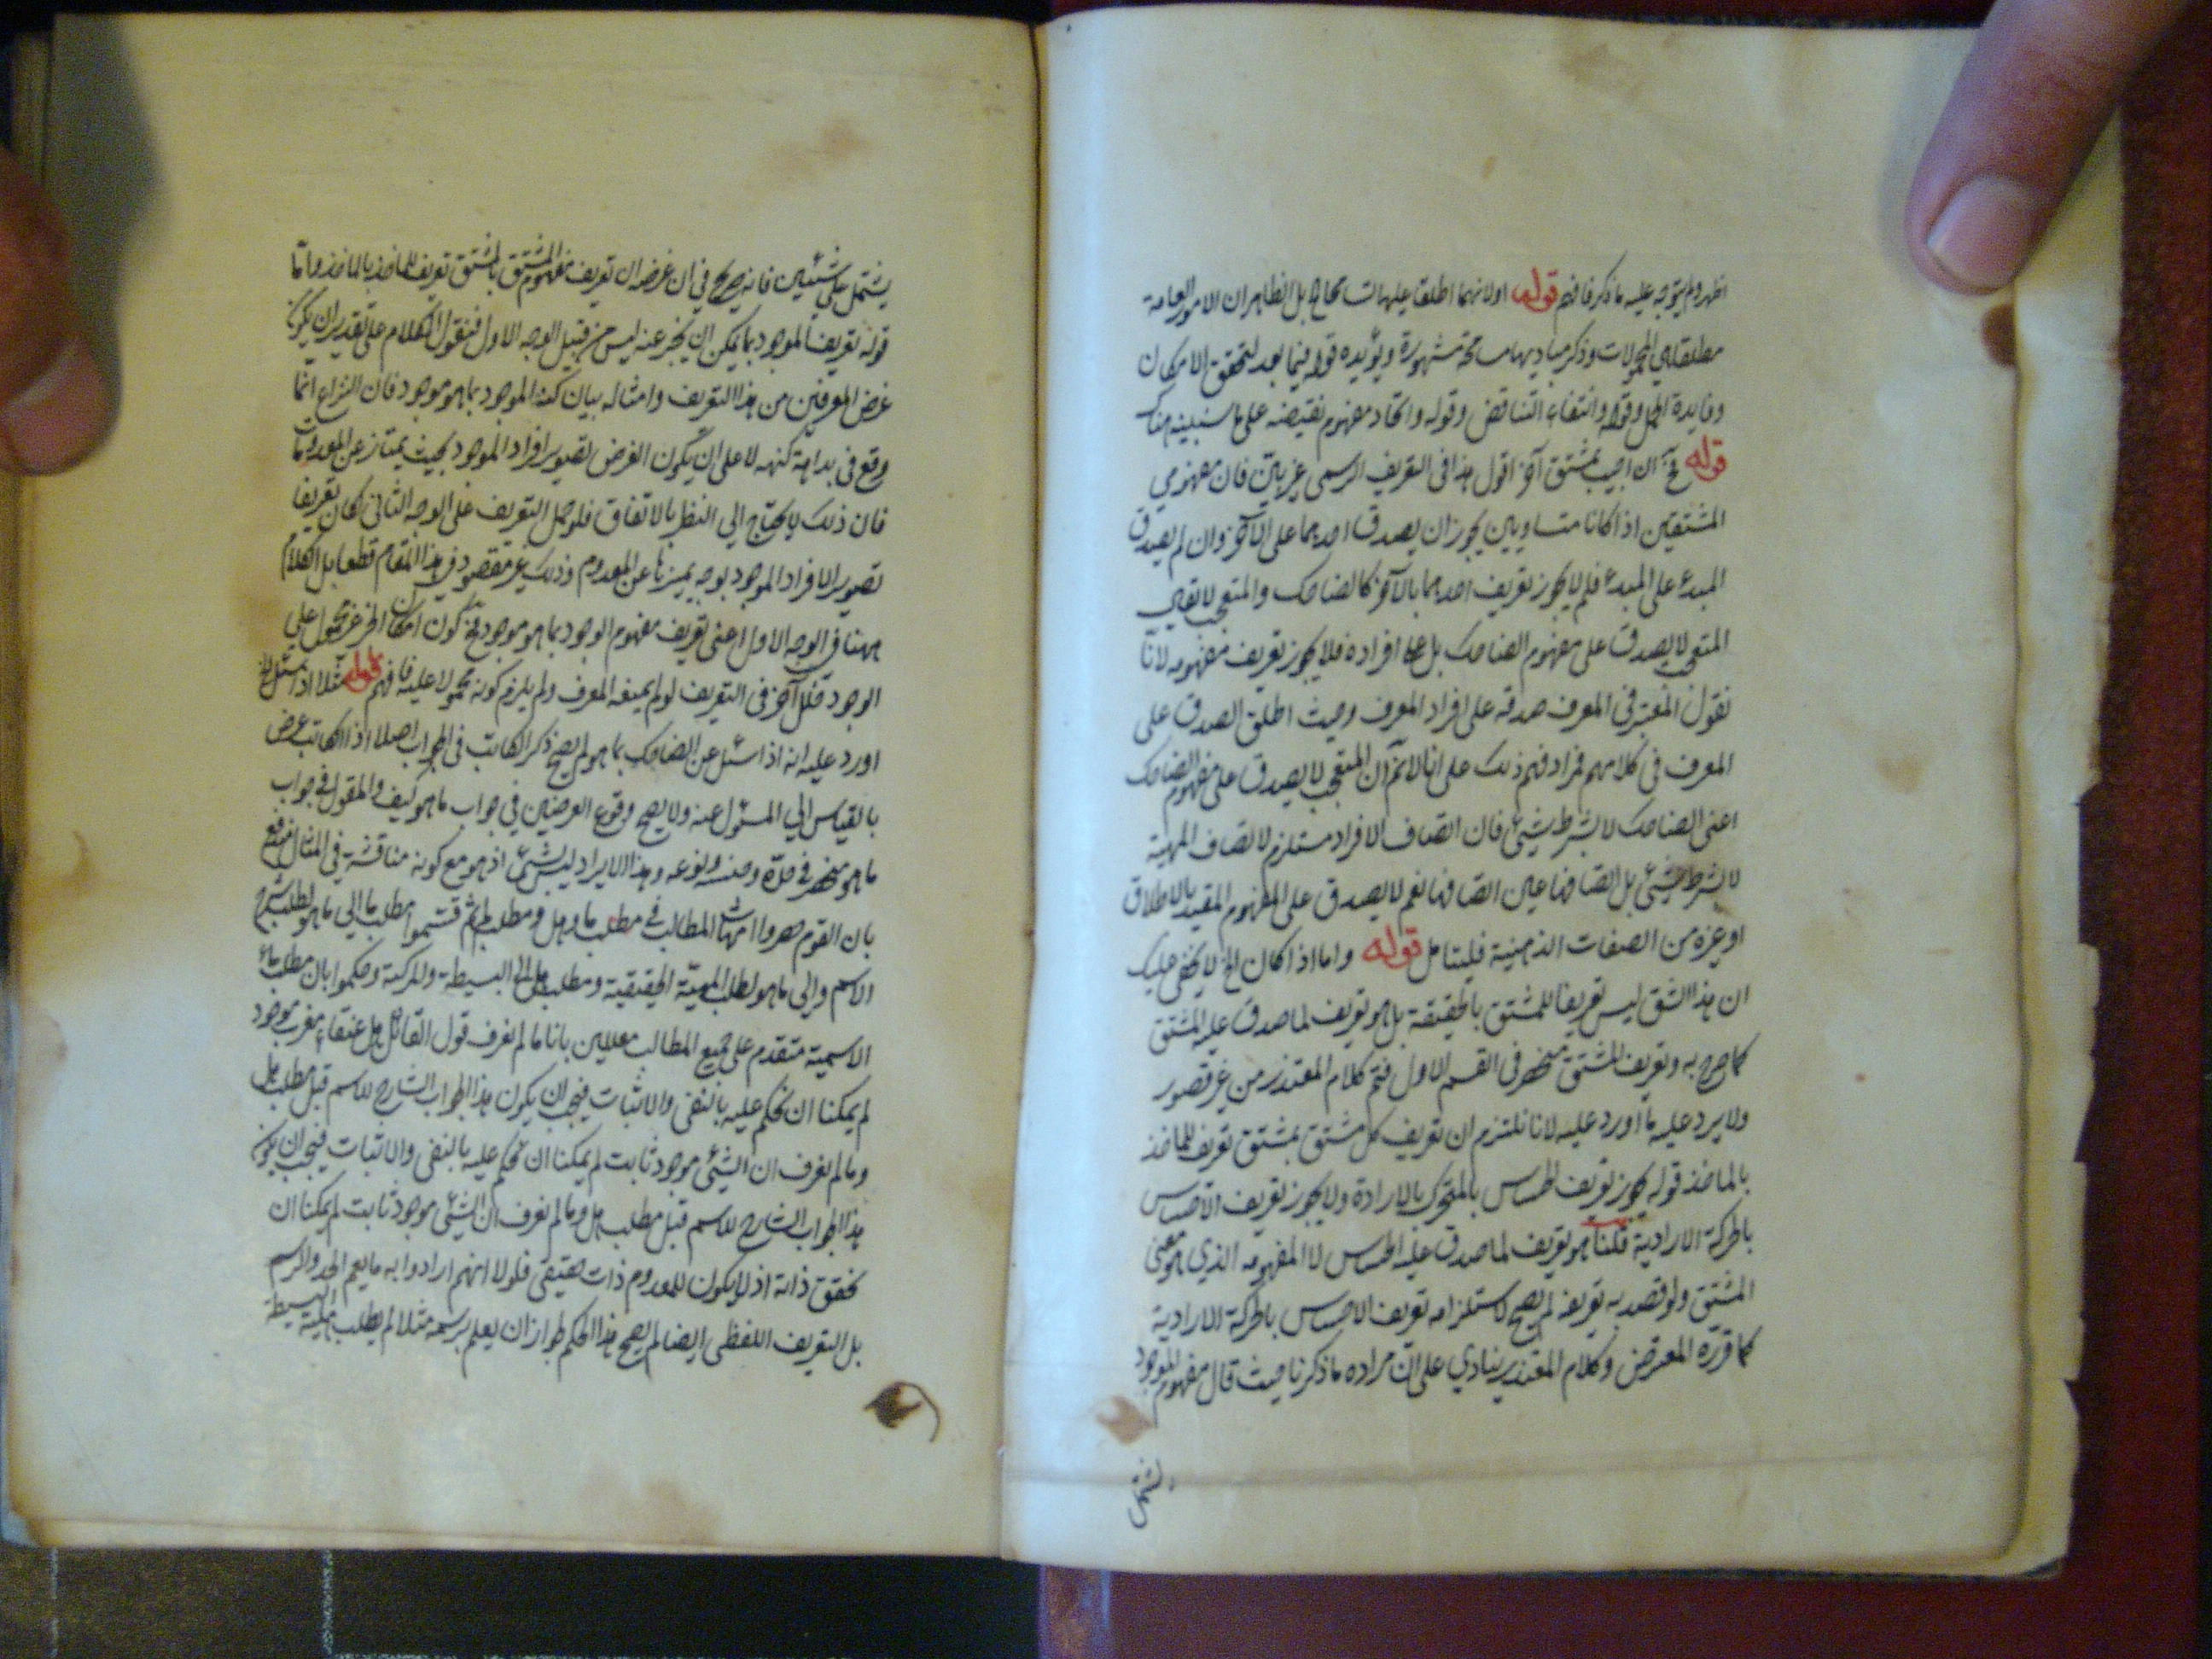 اظهر ولم يتوجه عليه ما ذكر فافهم قوله اولا نهما اطلقا عليها تسامحا بل الظاهر ان الامور العامة
مطلقا هي المحمولات وذكر مباديها مسامحة مشهورة ويؤيده قوله فيما بعد لتحقق الامكان
وفايدة الحمل وقوله وانتفاء التناقض وقوله واتحاد مفهوم نقيضه على ما سنبينه هناك
قوله فح ان اجيب بمشتق آخر اقول هذا في التعريف الرسمي غير بين فان مفهومي
المشتقين اذا كانا متساويين يجوز ان يصدق احدهما على الآخر وان لم يصدق
المبدء على المبدء فلم لا يجوز تعريف احدهما بالآخر كالضاحك والمتعجب لا يقال
المتعجب لا يصدق على مفهوم الضاحك بل على افراده فلا يجوز تعريف مفهومه لانا
نقول المعتبر في المعرف صدقه على افراد المعرف وحيث اطلق الصدق على
المعرف في كلامهم فمرادهم ذلك على انا لا نم ان المتعجب لا يصدق على مفهوم الضاحك
اعني الضاحك لا بشرط شيئ فان اتصاف الافراد مستلزم لاتصاف المهية
لا بشرط شيئ بل اتصافها عين اتصافها نعم لا يصدق على المفهوم المقيد بالاطلاق
او غيره من الصفات الذهنية فليتامل قوله واما اذا كان الخ لا يخفى عليك
ان هذا الشق ليس تعريفا للمشتق بالحقيقة بل هو تعريف لما صدق عليه المشتق
كما صرح به وتعريف المشتق منحصر في القسم الاول فتم كلام المعتذر من غير قصور
ولا يرد عليه ما اورد عليه لانا نلتزم ان تعريف كل مشتق بمشتق تعريف للماخذ
بالماخذ قوله يجوز تعريف الحساس بالمتحرك بالارادة ولا يجوز تعريف الاحساس
بالحركة الارادية قلنا هو تعريف لما صدق عليه الحساس لا المفهومه الذي هو معنى
المشتق ولو قصد به تعريفه لم يصح لاستلزامه تعريف الاحساس بالحركة الارادية
كما قرره المعترض وكلام المعتذر ينادي على ان مراده ما ذكرنا حيث قال مفهوم الموجود
يشتمل
يشتمل على شيئين فانه صريح في ان غرضه ان تعريف مفهوم المشتق بالمشتق تعريف للماخذ بالماخذ واما
قوله تعريف الموجود بما يمكن ان يخبر عنه ليس من قبيل الوجه الاول فنقول الكلام على تقدير ان يكون
غرض المعرفين من هذا التعريف وامثاله بيان كنه الموجود بما هو موجود فان النزاع انما
وقع في بداهة كنهه لا على ان يكون الغرض تصوير افراد الموجود بحيث يمتاز عن المعدومات
فان ذلك لا يحتاج الى النظر بالاتفاق فلو حمل التعريف على الوجه الثاني لكان تعريفا
تصوير الافراد الموجود بوجه يميزها عن المعدوم وذلك غير مقصود في هذا المقام قطعا بل الكلام
ههنا في الوجه الاول اعني تعريف مفهوم الوجود بما هو موجود فح كون امكان الخبر غير محمول على
الوجود خلل آخر في التعريف لو لم يميفه المعرف ولم يلزم كونه محمولا عليه فافهم قوله مثلا اذا سئل الخ
اورد عليه انه اذا سئل عن الضاحك بما هو لم يصح ذكر الكاتب في الجواب اصلا اذ الكاتب عرض
بالقياس الى المسئول عنه ولا يصح وقوع العرضين في جواب ما هو كيف والمقول في جواب
ما هو منحصر في حده وجنسه ونوعه وهذا الايراد ليس بشئ اذ هو مع كونه مناقشة في المثال مندفع
بان القوم حصروا امهات المطالب في مطلب ما وهل ومطلب لم ثم قسموا مطلب ما الى ما هو لطلب شرح
الاسم والى ما هو لطلب المهية الحقيقية ومطلب هل الى البسيطة والمركبة وحكموا بان مطلب ما
الاسمية متقدم على جميع المطالب معللين بانا ما لم نعرف قول القائل هل عنقاء مغرب موجود
لم يمكنا ان نحكم عليه بالنفي والاثبات فيجب ان يكون هذا الجواب الشارح للاسم قبل مطلب هل
وما لم نعرف ان الشيئ موجود ثابت لم يمكنا ان نحكم عليه بالنفي والاثبات فيجب ان يكون
هذا الجواب الشارح للاسم قبل مطلب هل وما لم نعرف ان الشيئ موجود ثابت لم يمكنا ان
نحقق ذاته اذ لا يكون للمعدوم ذات حقيقي فلولا انهم ارادوا به ما يعم الحد والرسم
بل التعريف اللفظي ايضا لم يصح هذا الحكم لجواز ان يعلم برسمه مثلا ثم يطلب هلية البسيطة